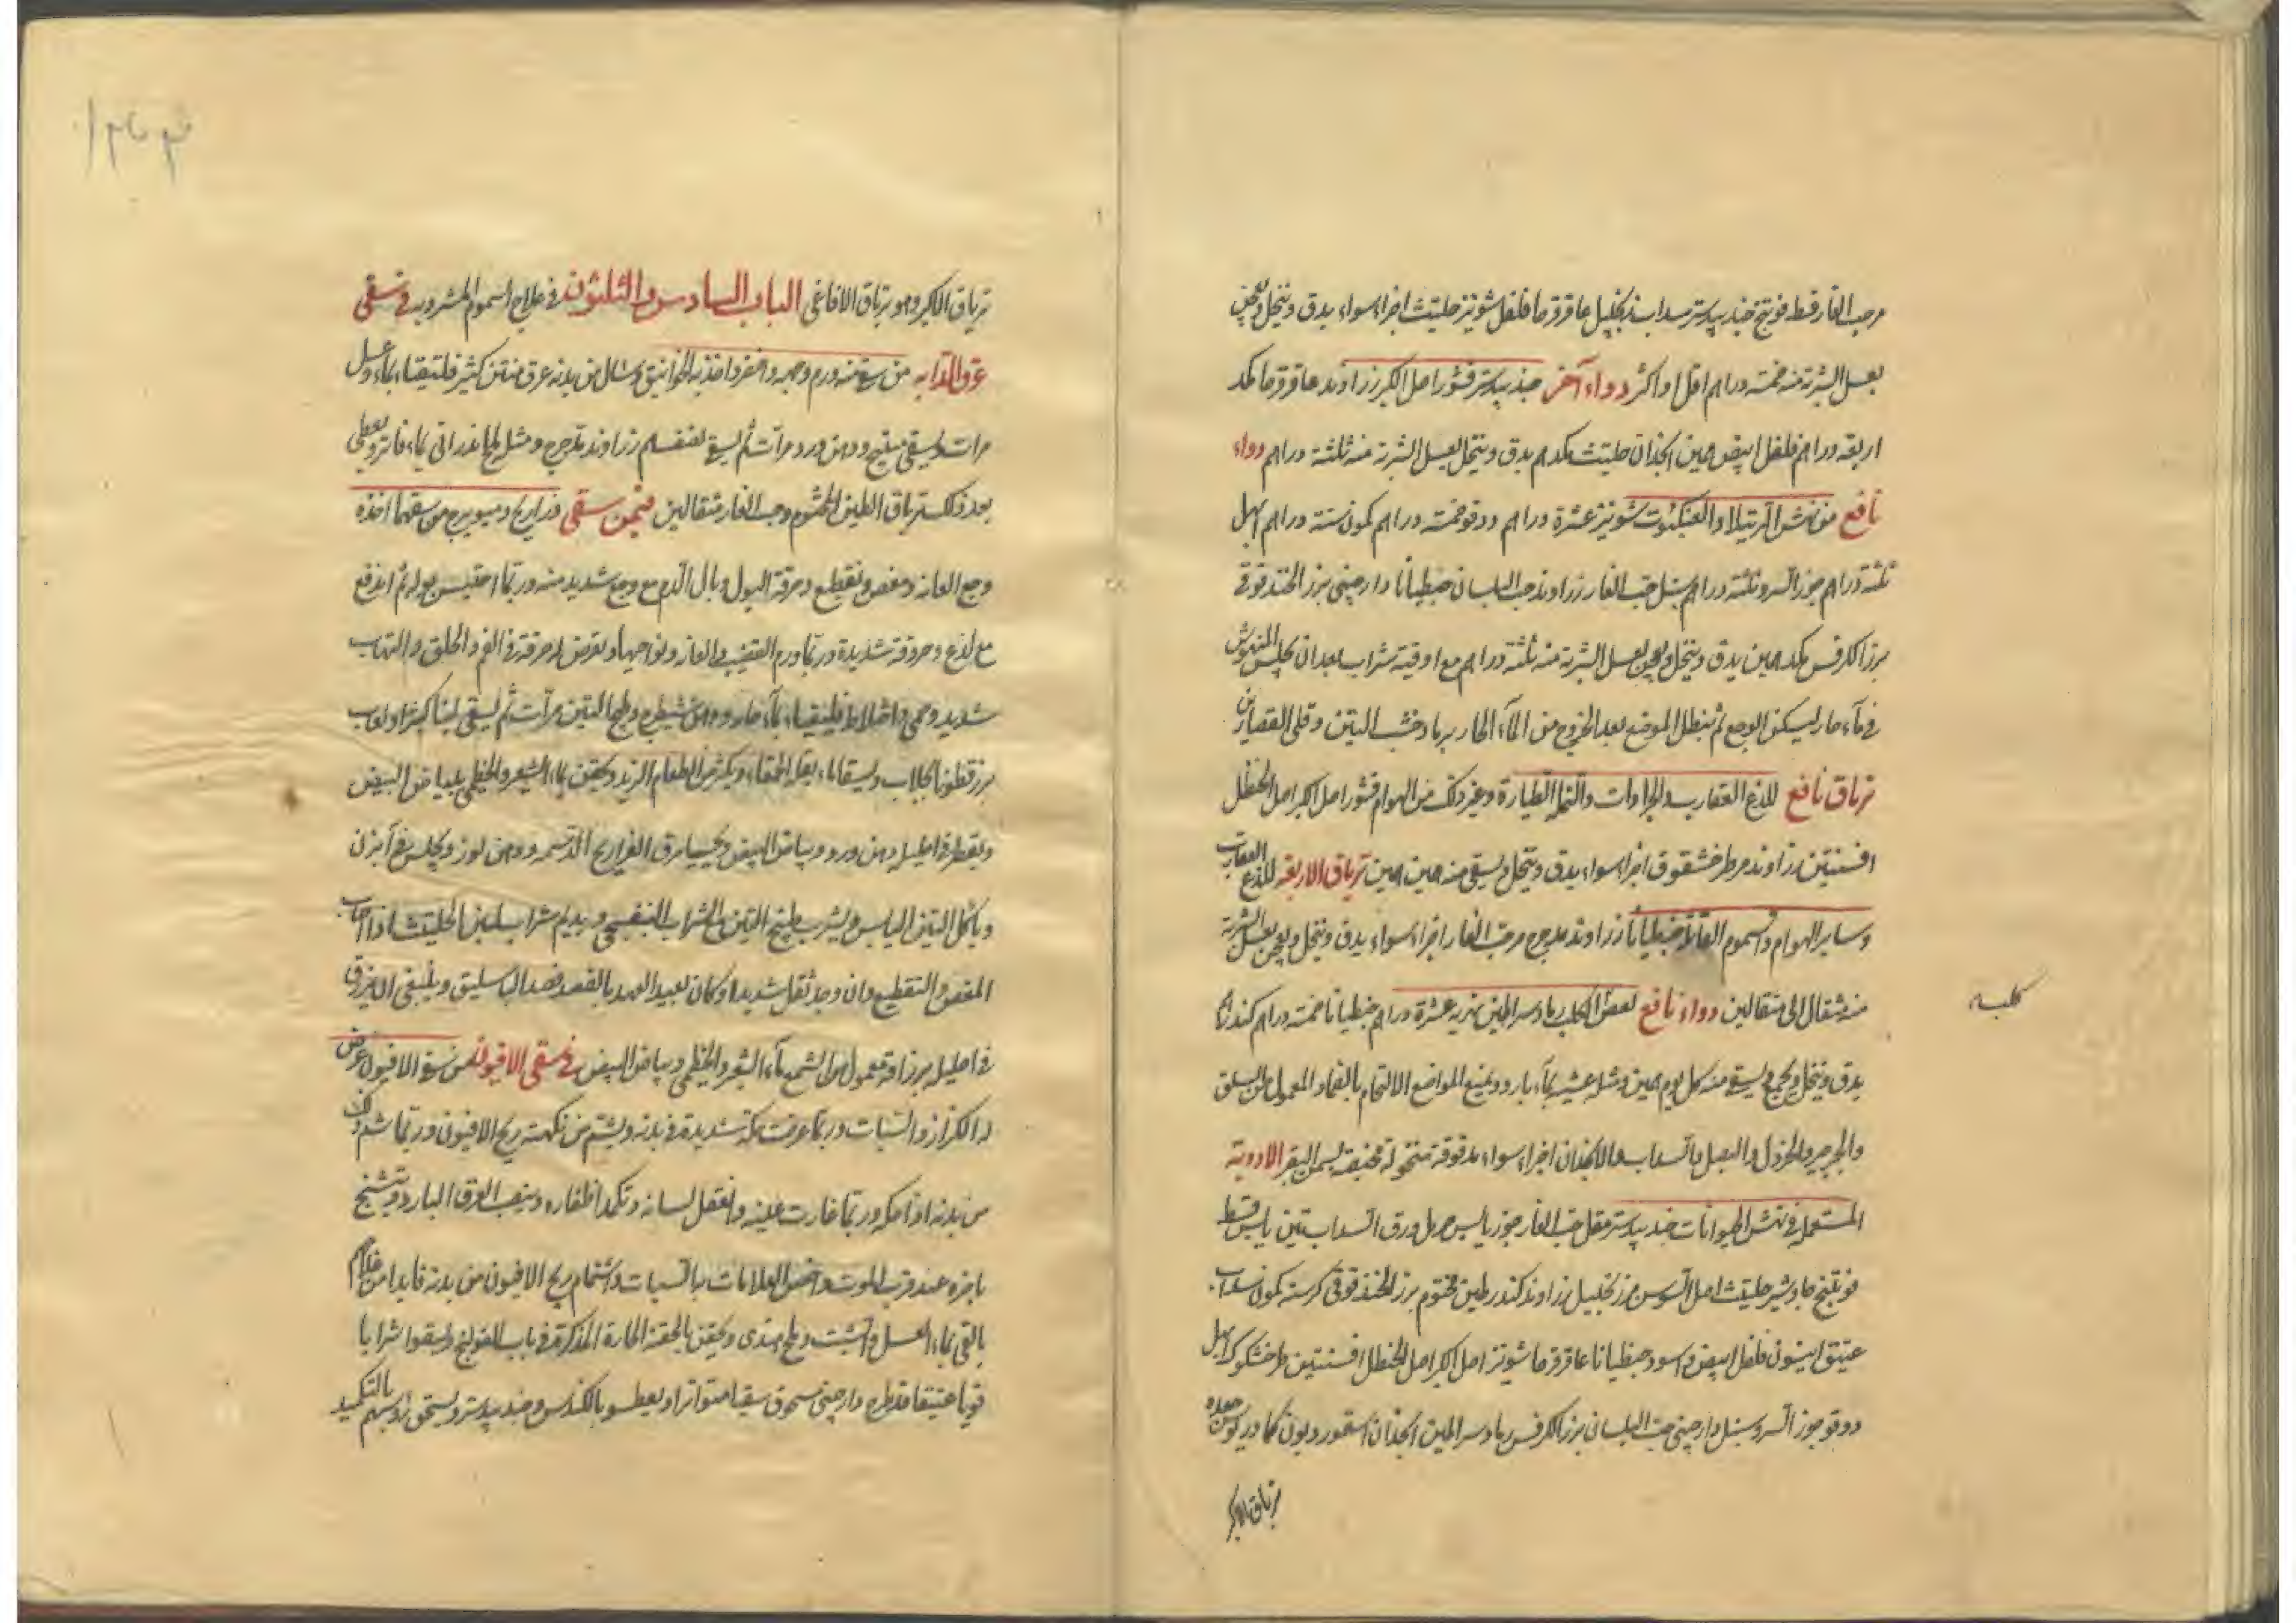 مر حب الغار قسط فوتنج جندبيدستر سداب زنجبيل عاقرقرحا فلفل شونيز حلتيت اجزاء سواء يدق وينخل ويعجن
بعسل الشربة منه خمسة دراهم اقل او اكثر دواء آخر جندبيدستر قشور اصل الكبر زراوند عاقرقرحا مكد
اربعة دراهم فلفل ابيض همين انجذان حلتيت مكدهم يدق وينخل بعسل الشربة منه ثلثة دراهم دواء
نافع من نهش الرتيلا والعنكبوت شونيز عشرة دراهم ودوقو خمسة دراهم كمون ستة دراهم ابهل
ثلثة دراهم جوز السرو ثلثة دراهم سنبل حب الغار زراوند حب البلسان جنطيانا دارجيني بزر الحندقوقي
بزر الكرفس مكد همين يدق وينخل ويعجن بعسل الشربة منه ثلثة دراهم مع اوقية شراب بعد ان يجلس المنهوش
في ماء حار ليسكن الوجع ثم ينطل الموضع بعد الخروج من الماء الحار برماد خشب التين وقلي القصارين
ترياق نافع للذع العقارب والجرارات والنمل الطيارة وغير ذلك من الهوام قشور اصل الكبر اصل الحنظل
افسنتين زراوند مر طرخشقوق اجزاء سواء يدق وينخل ويسقي منه همين همين ترياق الاربعة للذع العقارب
وساير الهوام والسموم القتالة جنطيانا زراوند مدحرج مر حب الغار اجزاء سواء يدق وينخل ويعجن بعسل الشربة
منه مثقال الي مثقالين دواء نافع لعض الكلب رماد سراطين نهرية عشرة دراهم جنطيانا خمسة دراهم كندر
كلبه
يدق وينخل ويجمع ويسقي منه كل يوم همين ومثله عشية بماء بارد ويمنع المواضع الالتحام بالضماد المعمول من السلق
والجرجير والخردل والبصل والسداب والانجذان اجزاء سواء مدقوقة منخولة بسمن البقر الادوية
المستعملة في نهش الحيوانات جندبيدستر مقل حب الغار جوز يابس حرمل ورق السداب تين يابس قسط
فوتنج جاوشير حلتيت اصل السوس مر زنجبيل زراوند كندر طين مختوم بزر الحندقوقي كرسنة كمون سداب
عتيق انيسون فلفل ابيض واسود جنطيانا عاقرقرحا شونيز اصل الكبر اصل الحنظل افسنتين طرخشكوك ابهل
دوقو جوز السرو سنبل دارجيني حب البلسان بزر الكرفس رماد سراطين انجذان اسقورديون كمادريوس جعده
ترياق الاكبر
ترياق الاكبر وهو ترياق الافاعي الباب السادس والثلثون في علاج السموم المشروبة في سقي
عرق الدابه من سقي منه ورم وجهه واخضر واخذ به الخوانيق وسال من بدنه عرق منتن كثير فليتقيا بماء وعسل
مرات ويسقي ميبختج ودهن ورد مرات ثم يسقي نصفهم زراوند مدحرج ومثل ملح اندراني بماء فاتر ويعطي
بعد ذلك ترياق الطين المختوم وحب الغار مثقالين فيمن سقي ذراريح وميويزج من سقيها اخذه
وجع العانة ومغص وتقطيع وحرقة البول وبال الدم مع وجع شديد منه وربما احتبس بوله ثم اندفع
مع لذع وحرقة شديدة وربما ورم القضيب والعانة ونواحيها ويعرض له حرقة في الفم والحلق والتهاب
شديد وحمي واختلاط فليتقيا بماء حار ودهن شيرج وطبيخ التين مرات ثم يسقي لبنا كثيرا ولعاب
بزرقطونا بجلاب ويسقا ماء بقلة الحمقاء ويكثر من الطعام الزبد ويحقن بماء الشعير والخطمي ببياض البيض
ويقطر في احليله دهن ورد وبياض البيض ويحسي مرق الفراريج الدسمه ودهن لوز ويجلس في آبزن
وياكل التين اليابس ويشرب طبيخ التين مع الشراب البنفسجي ويديم شراب لبن الحليب اذا اصاب
المغص والتقطيع وان وجد ثقل شديدا وكان بعيد العهد بالفصد فصد الباسليق وينبغي الا يزرق
في احليله بزراقة معمولة من الشمع بماء الشعير والخطمي وبياض البيض في سقي الافيون من سقي الافيون عرض
له الكزاز والسبات وربما عرضت حكة شديدة في بدنه ويشتم من نكهته ريح الافيون وربما شم ذلك
من بدنه اذا حكه وربما غارت عينه وانعقل لسانه وتكمد اظفاره وينصب العرق البارد ويتشنج
باخره عند قرب الموت واخص العلامات بالسبات واشتمام ريح الافيون من بدنه فابدا من علاجهم
بالقي بماء العسل والشبت وملح هندي ويحقن بالحقنة الحارة المذكورة في باب القولنج ويسقوا شرابا
قويا عتيقا دارجيني مسحوق سقيا متواترا ويعطسوا بالكندس وجندبيدستر ويسخن رؤسهم بالتكميد